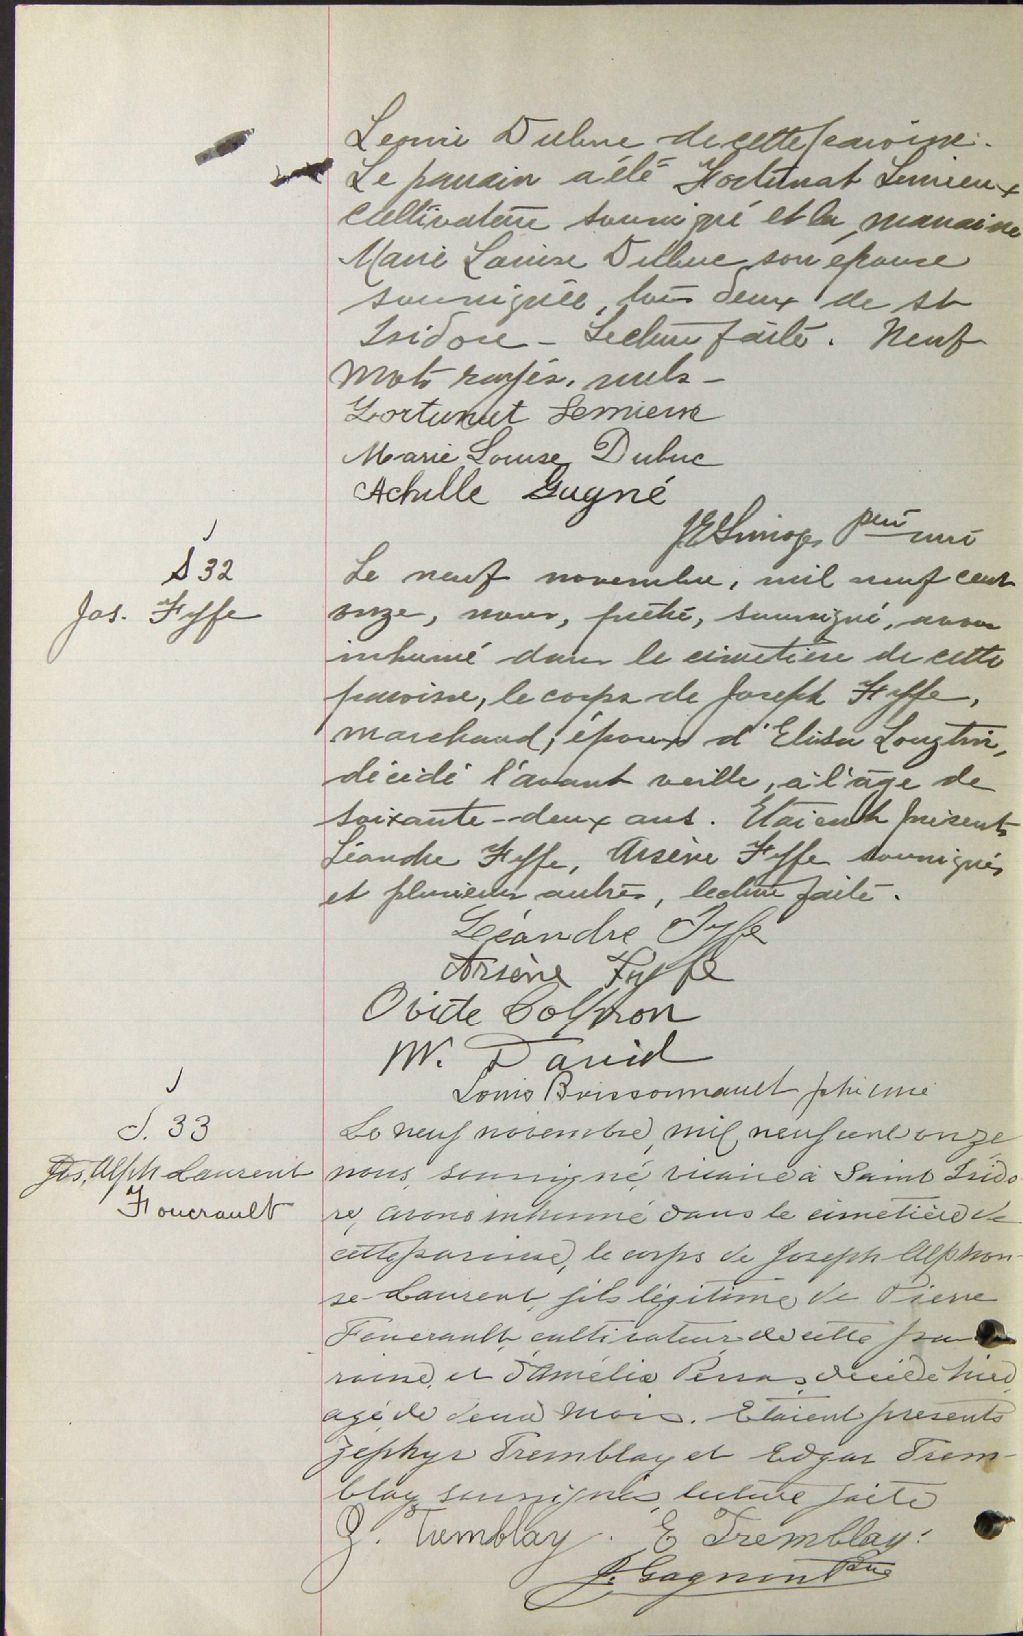 Leonie Dubuc de cette paroisse.
Le parrain a été Fortunat Lemieux
cultivateur soussigné et la marraine
Marie Louise Dubuc son épouse
soussignée, tous deux de St
Isidore - Lecture faite. Neuf
mots rayés, nuls -
Fortunat Lemieux
Marie Louise Dubuc
Achille Gagné
J E Limoges ptre curé
S 32
Jos. Fyffe
Le neuf novembre, mil neuf cent
onze, nous, prêtre, soussigné, avons
inhumé dans le cimetière de cette
paroisse, le corps de Joseph Fyffe,
marchand, époux d'Elisa Longtin,
décédé l'avant veille, à l'âge de
soixante-deux ans. Etaient présents
Léandre Fyffe, Arsène Fyffe soussignés
et plusieurs autres, lecture faite.
Léandre Fyffe
Arsène Fyffe
Ovide Coffron
W. David
Louis Boissonnault ptre curé
S. 33
Jos. Alph Laurent
Foucrault
Le neuf novembre, mil neuf cent onze
nous, soussigné, vicaire à Saint Isido
re, avons inhumé dans le cimetière de
cette paroisse, le corps de Joseph Alphon-
se Laurent, fils légitime de Pierre
Foucrault, cultivateur de cette pa
roisse, et d'Amélie Perras, décédé hier,
agé de deux mois. Etaient présents
Zéphyr Tremblay et Edgar Trem-
blay soussignés, lecture faite
Z. Tremblay. E Tremblay.
J. Gagnon Ptre